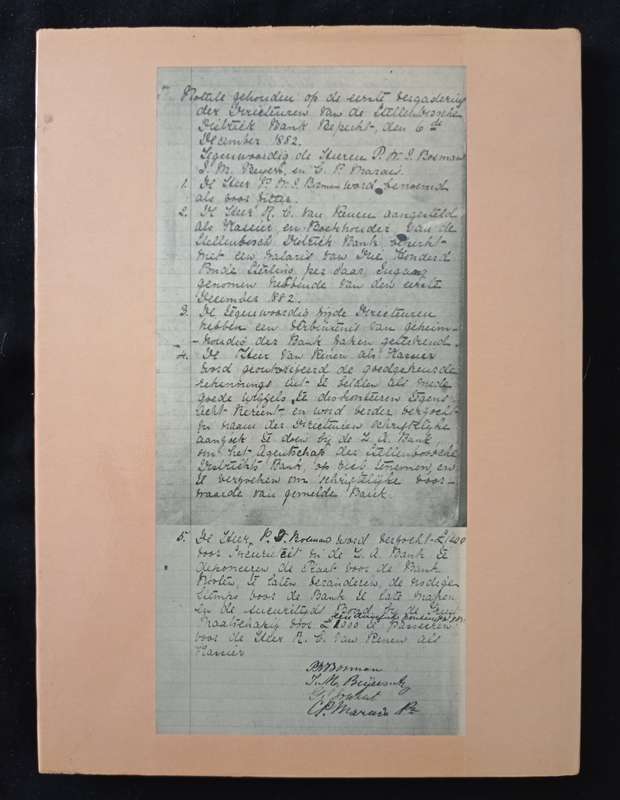 Notule gehouden op de eerste Vergadering
der Directeuren van de Stellenbossche
Distrikt Bank Beperkt, den 6de
December 1882.
Tegenwoordig de Heeren P. W. J. Bosman
J. M. Beyers, en C. P. Marais.
1. De Heer P. W. J. Bosman word benoemd
als voor zitter.
2. De Heer R. C. Van Renen aangesteld
als Kassier en Boekhouder van de
Stellenbosch Distrikt Bank beperkt-
met een salaris van Drie Honderd
Ponde Sterling per Jaar, Ingang
genomen hebbende van den eerste
December 1882.
3. De tegenwoordig zynde Directeuren
hebben een verbintenis van geheim-
houdig der Bank zaken geteekend.
4. De Heer Van Renen als Kassier
word geoutoriseerd de goedgekeurde
rekenings uit te betalen als mede
goede wissels te diskonteren tegens
acht Percent en word verder verzocht
in naam der Directeuren schriftelijke
aanzoek te doen by de Z. A. Bank
om het Agentschap der Stellenbossche
Distrikts Bank, op zich te nemen, en
te verzoeken om schriftelijke voor-
waarde van gemelde Bank.
5. De Heer P. Bosman word verzocht £1400
voor Securiteit in de Z. A. Bank te
deponeeren de Plaat voor de Bank
Noten, te laten veranderen, de nodige
Stemps voor de Bank te late maken
en de Securiteids Bond by de
Maatschapy voor £1000 te passeeren
voor de Heer R. C. Van Renen als
Kassier
PW Bosman
J. M. Beyers
CP. Marais Pz